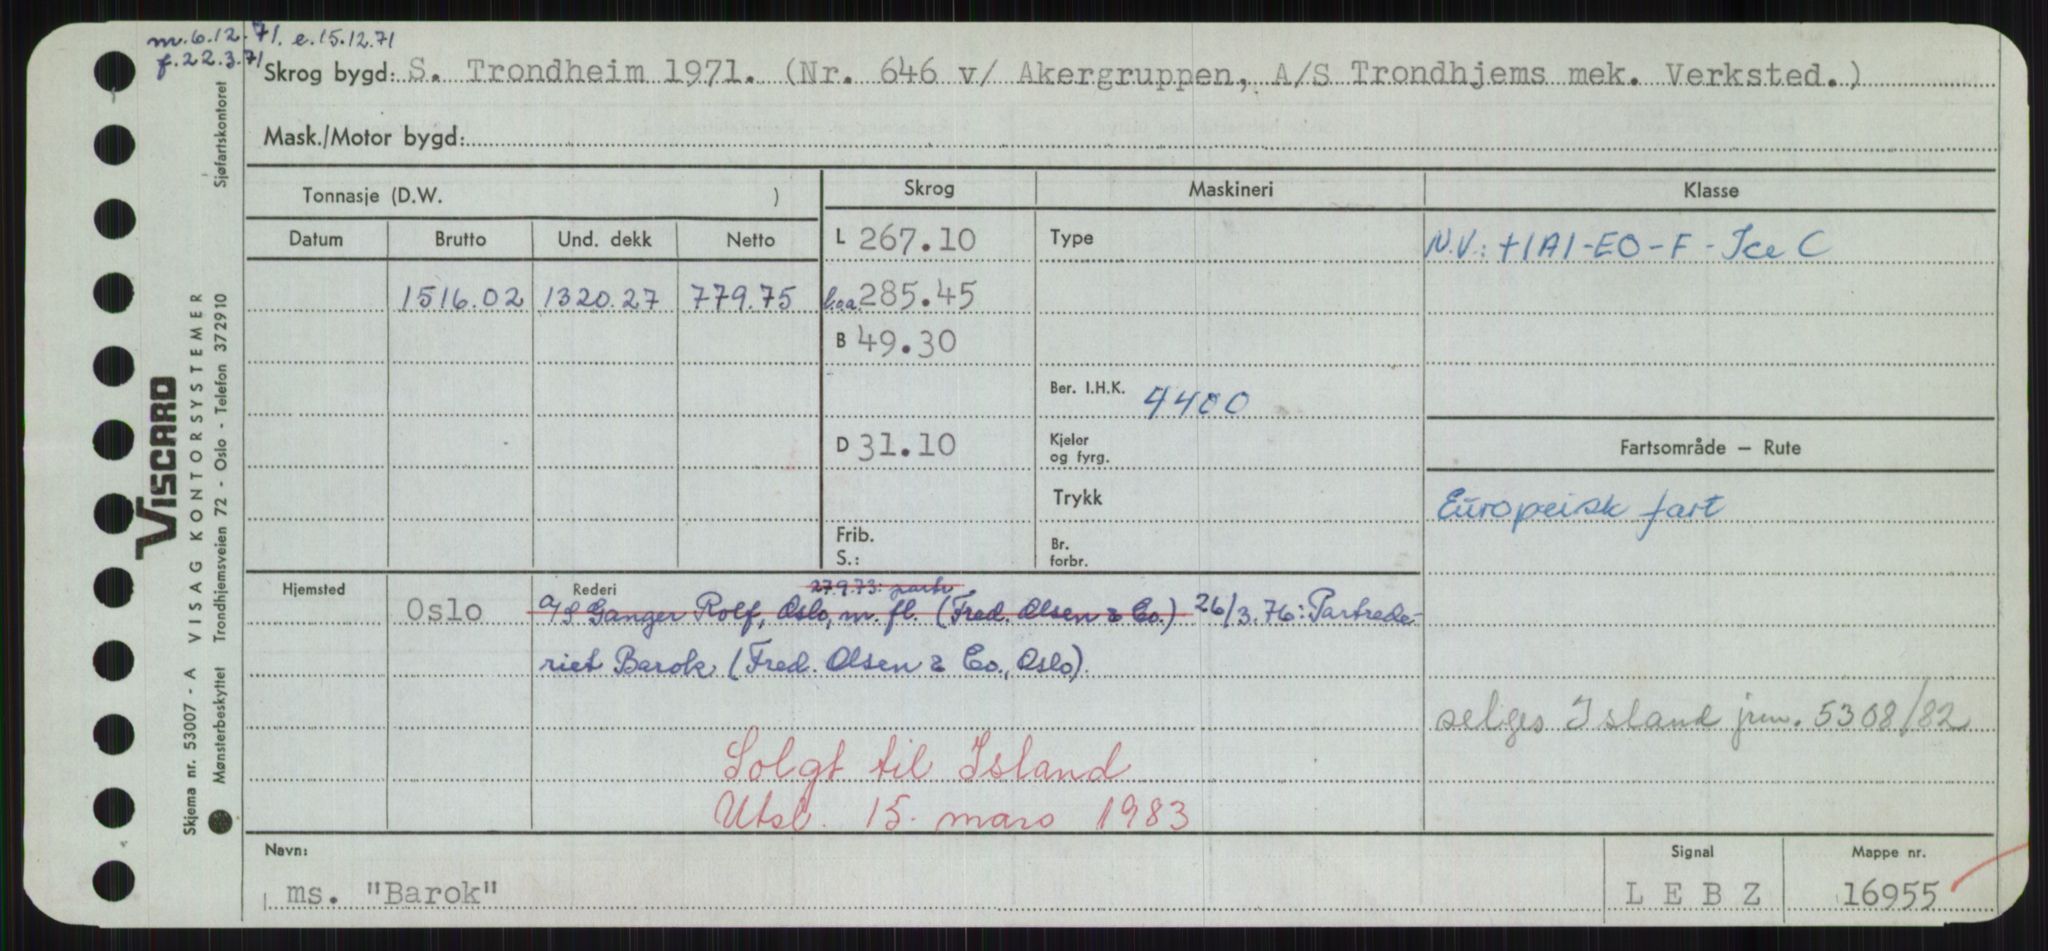 m. 6.12.71. e. 15.12.71
f. 22.3.71
Skrog bygd: S. Trondheim 1971. (Nr. 646 v/ Akergruppen, A/S Trondhjems mek. Verksted.)
Mask./Motor bygd:
Tonnasje (D.W. )
Skrog
Maskineri
Klasse
Datum
Brutto
Und. dekk
Netto
L 267.10
Type
N.V.: +1A1-EO-F-Ice C
1516.02
1320.27
779.75
l.o.a. 285.45
B 49.30
Ber. I.H.K. 4400
D 31.10
Kjeler
og fyrg.
Fartsområde — Rute
Trykk
Europeisk fart
Frib.
S.:
Br.
forbr.
Hjemsted
Oslo
Rederi
27.9.73: partr
A/S Ganger Rolf, Oslo, m. fl. (Fred. Olsen & Co.) 26/3.76: Partrede-
riet Barok (Fred. Olsen & Co., Oslo).
selges Island jrn. 5308/82
Solgt til Island
Utsl. 15. mars 1983
Navn:
ms. "Barok"
Signal
L E B Z
Mappe nr.
16955
VISCARD
Skjema nr. 53007 - A VISAG KONTORSYSTEMER
Mønsterbeskyttet Trondhjemsveien 72 - Oslo - Telefon 372910
Sjøfartskontoret